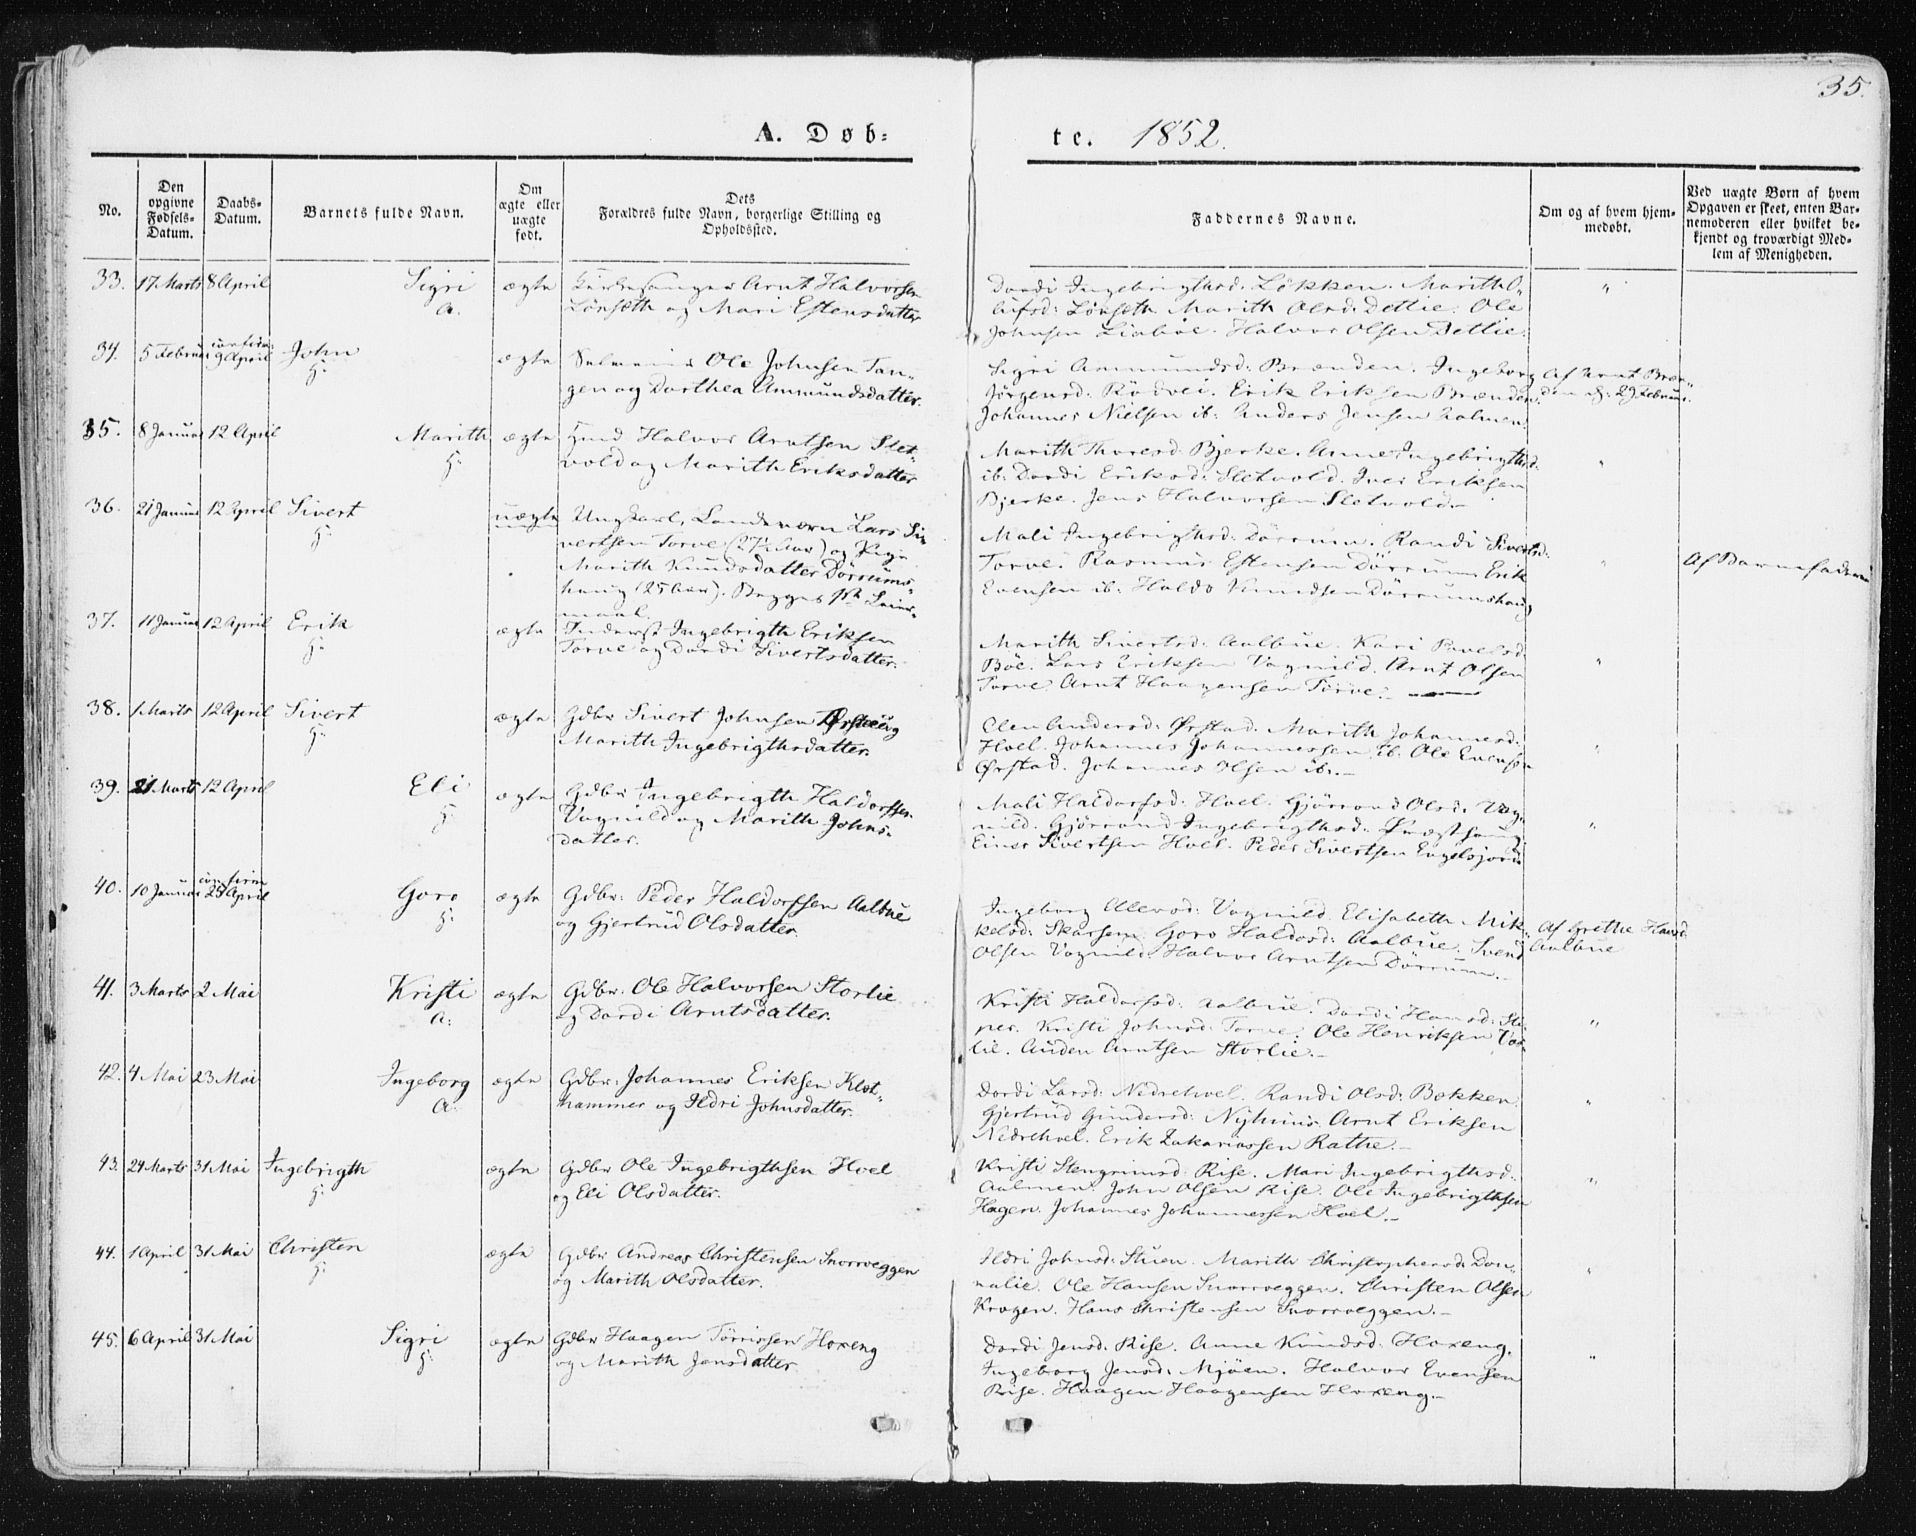 35.
A. Døb=
te. 1852.
No.
Den
opgivne
Fødsels-
Datum.
Daabs-
Datum.
Barnets fulde Navn.
Om
ægte eller
uægte
født.
Dets
Forældres fulde Navn, borgerlige Stilling og
Opholdssted.
Faddernes Navne.
Om og af hvem hjem-
medøbt.
Ved uægte Børn af hvem
Opgaven er skeet, enten Bar-
nemoderen eller hvilket be-
kjendt og troværdigt Med-
lem af Menigheden.
33. 17 Marts 8 April Sigri ægte Kirkesanger Arnt Halvorsen
A. Lönseth og Mari Estensdatter
Dordi Ingebrigthsd. Løkken. Marith O-
lufsd: Lönseth Marith Olsd. Dettlie. Ole
Johnsen Liaböe. Halvor Olsen Dettlie.
"
34. 5 Februar confirm: 9 April John ægte Ole Johnsen Tan-
H: gen og Dorthea Ammundsdatter.
Sigri Ammundsd: Brænden. Ingeborg
Jörgensd. Rödvei. Erik Eriksen Brænden.
Johannes Nielsen ib: Anders Jensen Aalmen.
Af Arnt Bræn-
den d: 29 Februar.
35. 8 Januar 12 April Marith ægte Halvor Arntsen Slet-
H: vold og Marith Eriksdatter
Marith Thoresd. Bjerke. Anne Ingebrigthsd.
ib. Dordi Eriksd. Sletvold. Iver Eriksen
Bjerke. Jens Halvorsen Sletvold.-
"
36. 21 Januar 12 April Sivert uægte Ungkarl, Landeværn Lars Si-
H: vertsen Torve (27½ Aar) og Pige
Marith Knudsdatter Dörrums-
haug (25 Aar). Begges 1ste Leier-
maal.
Mali Ingebrigthsd. Dörrum. Randi Sivertsd:
Torve. Rasmus Estensen Dörrum Erik
Evensen ib: Haldo Knudsen Dörrumshaug
"
Af Barnefaderen
37. 11 Januar 12 April Erik ægte Inderst Ingebrigth Eriksen
H: Torve og Dordi Sivertsdatter.
Marith Sivertsd: Aalbue. Kari Povelsd.
Böe. Lars Eriksen Vognild. Arnt Olsen
Torve. Arnt Haagensen Torve.-
"
38. 1 Marts 12 April Sivert ægte Gdbr Sivert Johnsen Ørstad og
H: Marith Ingebrigthsdatter.
Elen Andersd: Ørstad. Marith Johannesd.
Hoel. Johannes Johannessen ib: Ole Evensen
Ørstad. Johannes Olsen ib.-
"
39. 21 Marts 12 April Eli ægte Gdbr Ingebrigth Haldorsen
H: Vognild og Marith Johns-
datter.
Mali Haldorsd: Hoel. Gjörrond Olsd. Vog-
nild. Gjörrond Ingebrigthsd:
Einer Sivertsen Hoel. Peder Sivertsen Engelsjord
"
40. 10 Januar confirm 25 April Goro ægte Gdbr: Peder Haldorsen Aalbue
H: og Gjertrud Olsdatter.
Ingeborg Allevsd: Vognild. Elisabeth Mik-
kelsd: Skarsem. Goro Haldosd: Aalbue. Svend
Olsen Vognild. Halvor Arntsen Dörrum.-
Af Grethe Havsd.
Aalbue
41. 3 Marts 2 Mai Kristi ægte Gdbr: Ole Halvorsen Storlie
A: og Dordi Arntsdatter.
Kristi Haldorsd: Aalbue. Dordi Hansd: Sti-
nes. Kristi Johnsd: Torve. Ole Henriksen Vor-
lie. Auden Arntsen Storlie.-
"
42. 4 Mai 23 Mai Ingeborg ægte Gdbr: Johannes Eriksen Klet-
A: hammer og Ildri Johnsdatter.
Dordi Larsd: Nedrehoel. Randi Olsd: Bakken.
Gjertrud Gundersd: Nyhuus. Arnt Eriksen
Nedrehoel. Erik Zakariassen Rathe.-
"
43. 24 Marts 31 Mai Ingebrigth ægte Gdbr Ole Ingebrigthsen Hoel
H: og Eli Olsdatter.
Kristi Stengrimsd: Rise. Mari Ingebrigthsd.
Aalmen. John Olsen Rise. Ole Ingebrigthsen
Hagen. Johannes Johannessen Hoel.-
"
44. 1 April 31 Mai Christen ægte Gdbr Andreas Christensen Snorroeggen
H: og Marith Olsdatter.
Ildri Johnsd: Stuen. Marith Christophersd: Don-
nalie. Ole Hansen Snorroeggen. Christen Olsen
Krogen. Hans Christensen Snorroeggen.-
"
45. 6 April 31 Mai Sigri ægte Gdbr Haagen Törrissen Hoxeng
H: og Marith Jensdatter
Dordi Jensd: Rise. Anne Knudsd: Hoxeng.
Ingeborg Jensd: Mjöen. Halvor Evensen
Rise. Haagen Haagensen Hoxeng.-
"